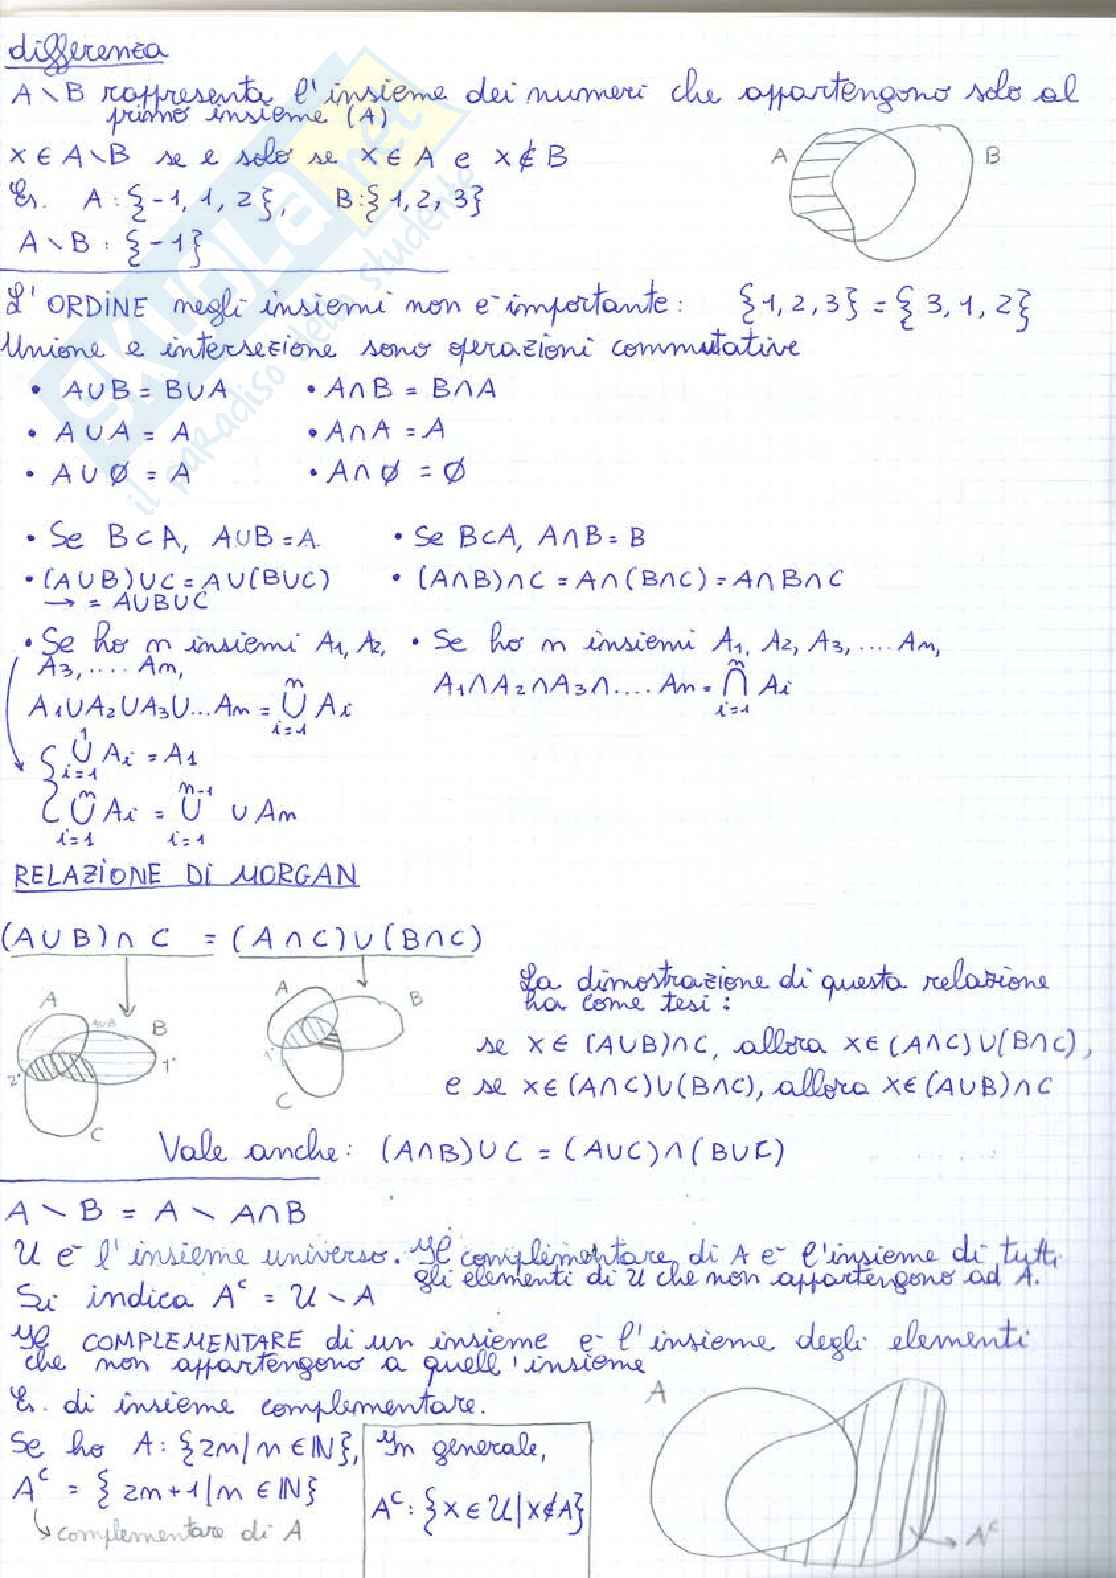 differenza
A \ B rappresenta l'insieme dei numeri che appartengono solo al
primo insieme (A)
x ∈ A \ B se e solo se x ∈ A e x ∉ B
A B
Es. A : {-1, 1, 2}, B:{1, 2, 3}
A \ B : {-1}
L'ORDINE negli insiemi non è importante: {1, 2, 3} = {3, 1, 2}
Unione e intersezione sono operazioni commutative
• A∪B = B∪A • A∩B = B∩A
• A∪A = A • A∩A = A
• A∪Ø = A • A∩Ø = Ø
• Se B⊂A, A∪B = A. • Se B⊂A, A∩B = B
• (A∪B)∪C = A∪(B∪C) • (A∩B)∩C = A∩(B∩C) = A∩B∩C
→ = A∪B∪C
• Se ho n insiemi A1, A2, • Se ho n insiemi A1, A2, A3, .... An,
A3, .... An,
A1∩A2∩A3∩.... An = n∩i=1 Ai
A1∪A2∪A3∪... An = n∪i=1 Ai
{ 1∪i=1 Ai = A1
{ n∪i=1 Ai = n-1∪i=1 ∪ An
RELAZIONE DI MORGAN
(A∪B)∩C = (A∩C)∪(B∩C)
A A∪B B 1° 2° C
A B 1° C
La dimostrazione di questa relazione
ha come tesi:
se x∈(A∪B)∩C, allora x∈(A∩C)∪(B∩C),
e se x∈(A∩C)∪(B∩C), allora x∈(A∪B)∩C
Vale anche: (A∩B)∪C = (A∪C)∩(B∪C)
A \ B = A \ A∩B
U è l'insieme universo. Il complementare di A è l'insieme di tutti
gli elementi di U che non appartengono ad A.
Si indica Aᶜ = U \ A
Il COMPLEMENTARE di un insieme è l'insieme degli elementi
che non appartengono a quell'insieme
Es. di insieme complementare.
Se ho A: {2n | n ∈ ℕ},
Aᶜ = {2n+1 | n ∈ ℕ}
↳ complementare di A
In generale,
Aᶜ: {x ∈ U | x∉A}
A Aᶜ
SKUOLA.net
il paradiso dello studente